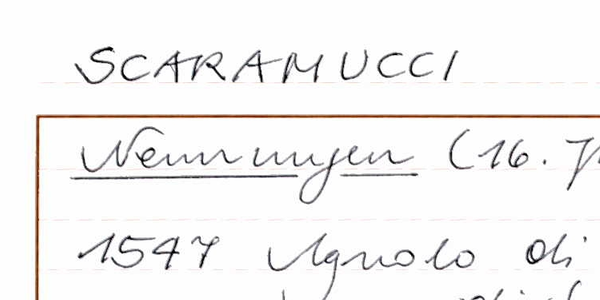 SCARAMUCCI
Nennungen (16.
1547 Agnolo di